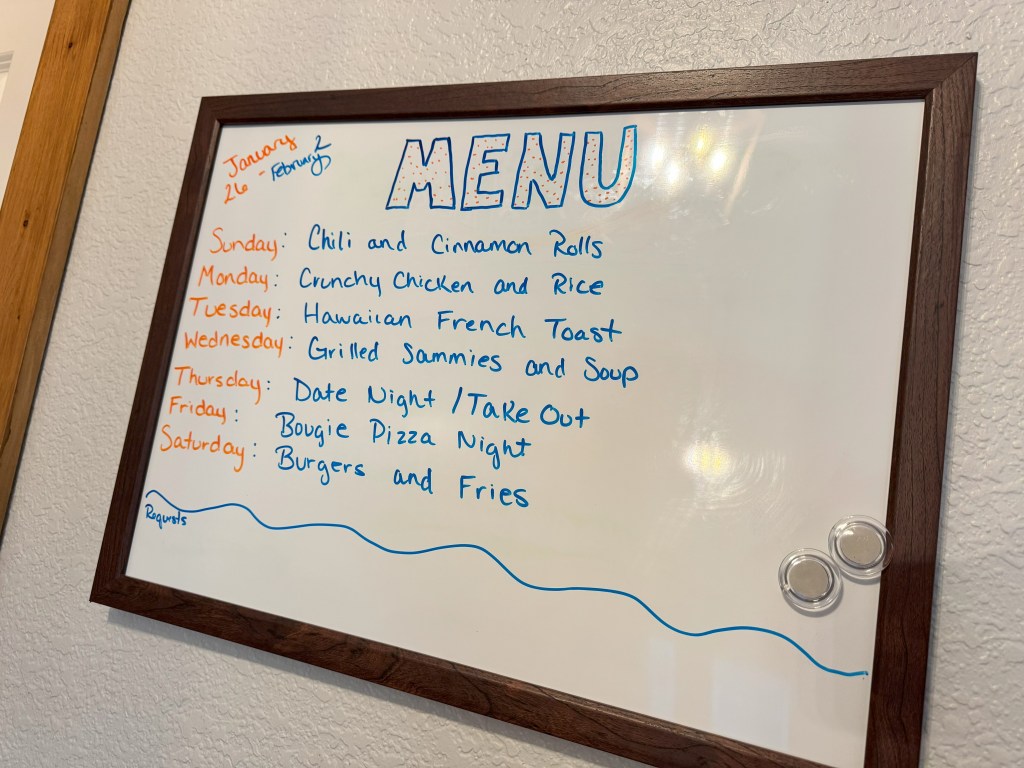 January
26 - February 2
MENU
Sunday: Chili and Cinnamon Rolls
Monday: Crunchy Chicken and Rice
Tuesday: Hawaiian French Toast
Wednesday: Grilled Sammies and Soup
Thursday: Date Night / Take Out
Friday: Bougie Pizza Night
Saturday: Burgers and Fries
Requests